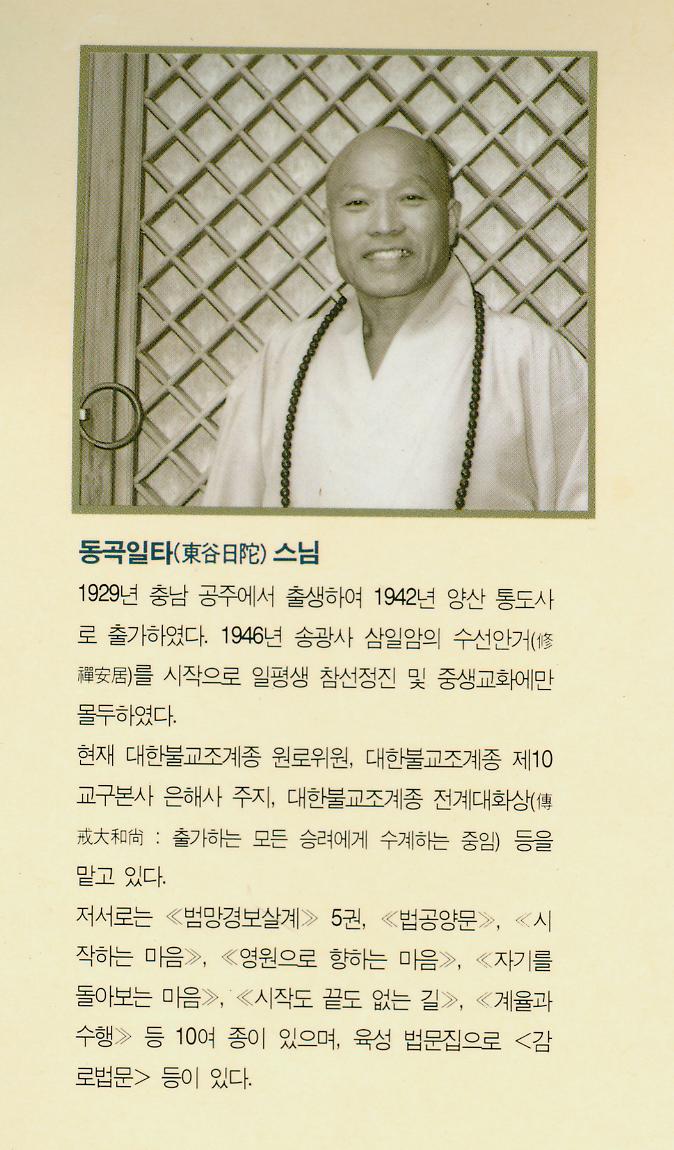 동곡일타(東谷日陀) 스님
1929년 충남 공주에서 출생하여 1942년 양산 통도사
로 출가하였다. 1946년 송광사 삼일암의 수선안거(修
禪安居)를 시작으로 일평생 참선정진 및 중생교화에만
몰두하였다.
현재 대한불교조계종 원로위원, 대한불교조계종 제10
교구본사 은해사 주지, 대한불교조계종 전계대화상(傳
戒大和尙 : 출가하는 모든 승려에게 수계하는 중임) 등을
맡고 있다.
저서로는 ≪범망경보살계≫ 5권, ≪법공양문≫, ≪시
작하는 마음≫, ≪영원으로 향하는 마음≫, ≪자기를
돌아보는 마음≫, ≪시작도 끝도 없는 길≫, ≪계율과
수행≫ 등 10여 종이 있으며, 육성 법문집으로 <감
로법문> 등이 있다.